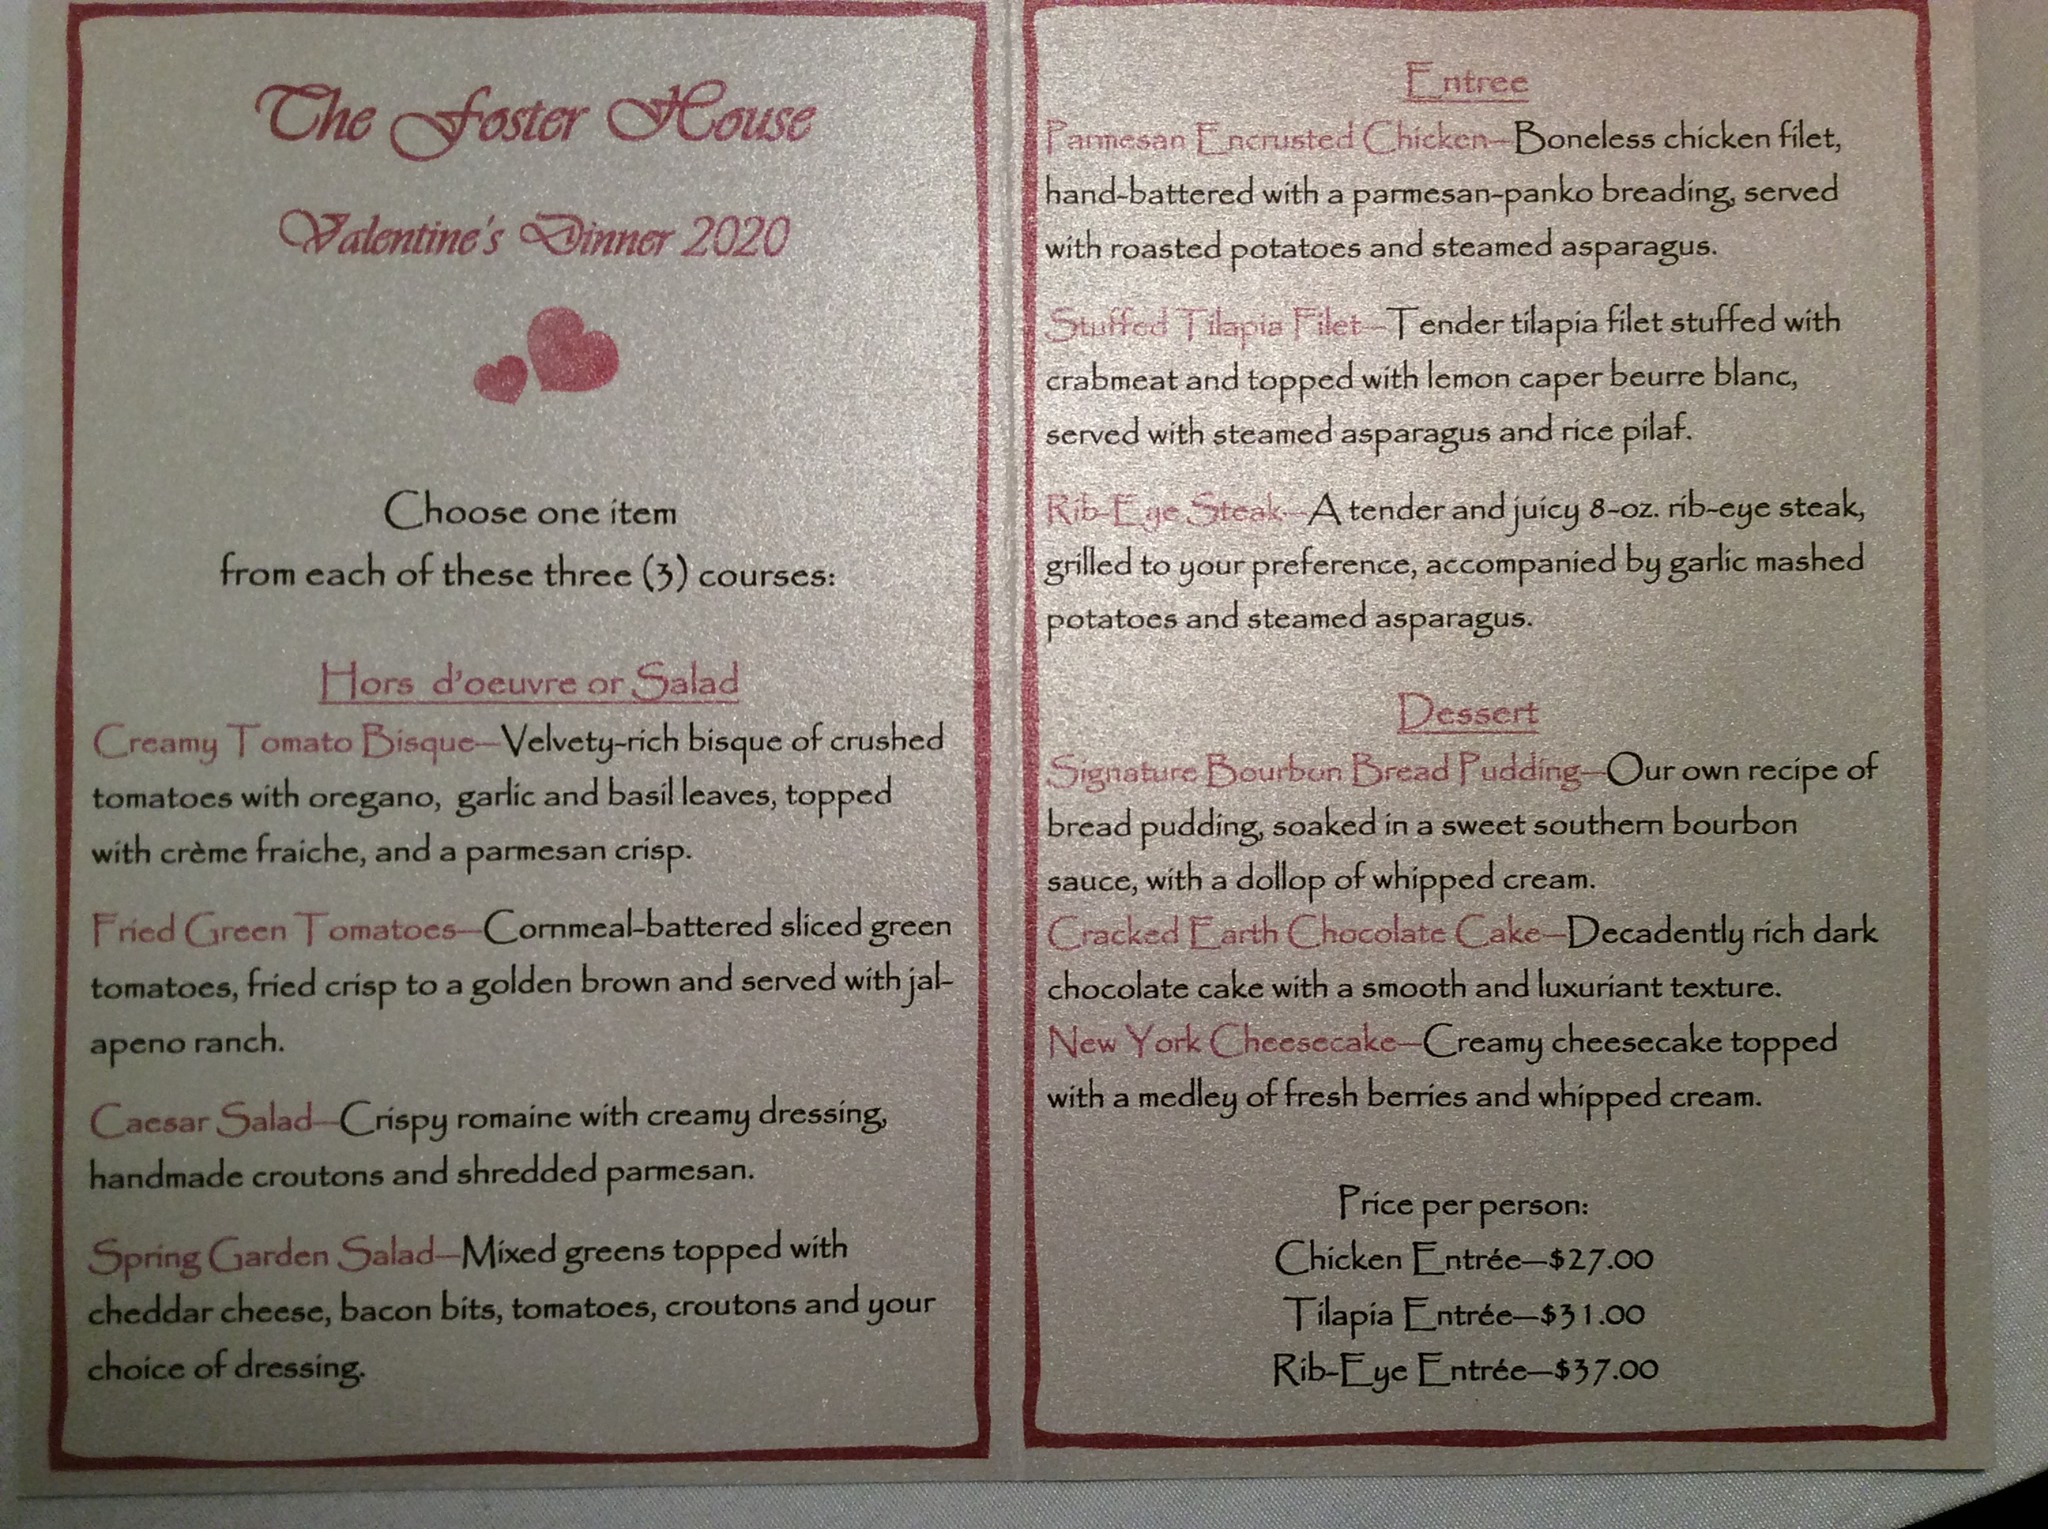 The Foster House
Valentine's Dinner 2020
Choose one item
from each of these three (3) courses:
Hors d'oeuvre or Salad
Creamy Tomato Bisque—Velvety-rich bisque of crushed
tomatoes with oregano, garlic and basil leaves, topped
with crème fraiche, and a parmesan crisp.
Fried Green Tomatoes—Cornmeal-battered sliced green
tomatoes, fried crisp to a golden brown and served with jal-
apeno ranch.
Caesar Salad—Crispy romaine with creamy dressing,
handmade croutons and shredded parmesan.
Spring Garden Salad—Mixed greens topped with
cheddar cheese, bacon bits, tomatoes, croutons and your
choice of dressing.
Entree
Parmesan Encrusted Chicken—Boneless chicken filet,
hand-battered with a parmesan-panko breading, served
with roasted potatoes and steamed asparagus.
Stuffed Tilapia Filet—Tender tilapia filet stuffed with
crabmeat and topped with lemon caper beurre blanc,
served with steamed asparagus and rice pilaf.
Rib-Eye Steak—A tender and juicy 8-oz. rib-eye steak,
grilled to your preference, accompanied by garlic mashed
potatoes and steamed asparagus.
Dessert
Signature Bourbon Bread Pudding—Our own recipe of
bread pudding, soaked in a sweet southern bourbon
sauce, with a dollop of whipped cream.
Cracked Earth Chocolate Cake—Decadently rich dark
chocolate cake with a smooth and luxuriant texture.
New York Cheesecake—Creamy cheesecake topped
with a medley of fresh berries and whipped cream.
Price per person:
Chicken Entrée—$27.00
Tilapia Entrée—$31.00
Rib-Eye Entrée—$37.00